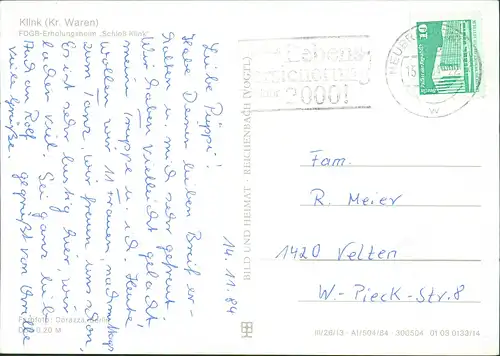 Klink (Kr. Waren)
FDGB-Erholungsheim „Schloß Klink“
14.11.84
Liebe Püppi!
Habe Deinen lieben Brief er-
halten u. mich sehr gefreut.
Wir haben vielleicht gelacht
meine Truppe u. ich. Heute,
wollen wir 11 Frauen, nachmittags
zum Tanz, wir freuen uns schon,
Es ist sehr lustig hier, wir
lachen viel. Sei ganz lieb
Auch an Rolf gegrüßt von
viele Grüße.
Farbfoto: Darazza,
0,20 M
BILD UND HEIMAT · REICHENBACH (VOGTL)
Lebens-
versicherung
2000!
15
W
10
Fam.
R. Meier
1420 Velten
W.-Pieck-Str. 8
III/26/13 · A1/504/84 · 300504 · 01 09 0133/14